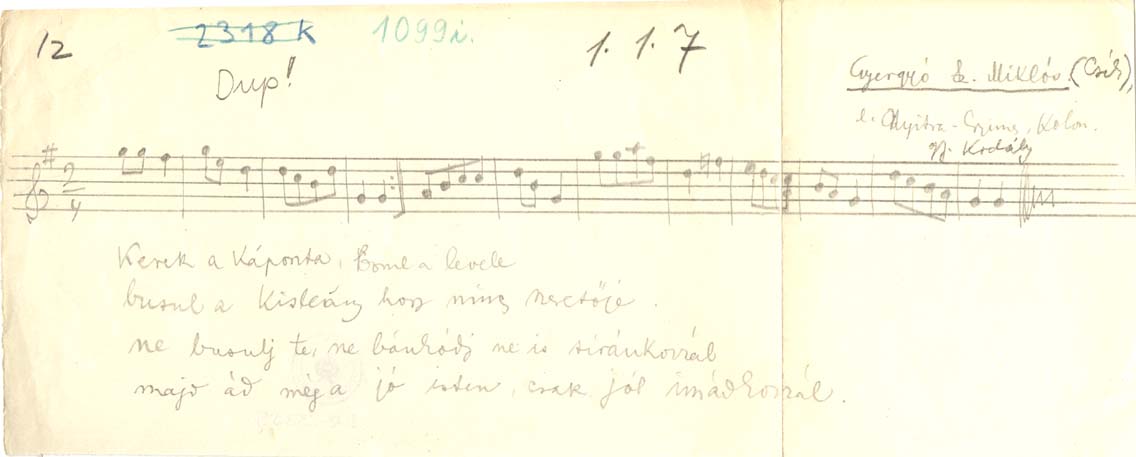 12
2318 k
1099i.
1. 1. 7
Dup!
Gyergyó Sz. Miklós (Csík),
l. Nyitra - Kolon.
gy. Kodály
2
4
Kerek a káposta, boml a levele
busul a kisleány hogy nincs szeretője.
ne busulj te, ne bánkódj ne is siránkozzál
majd ád még a jó isten, csak jól imádkozzál.